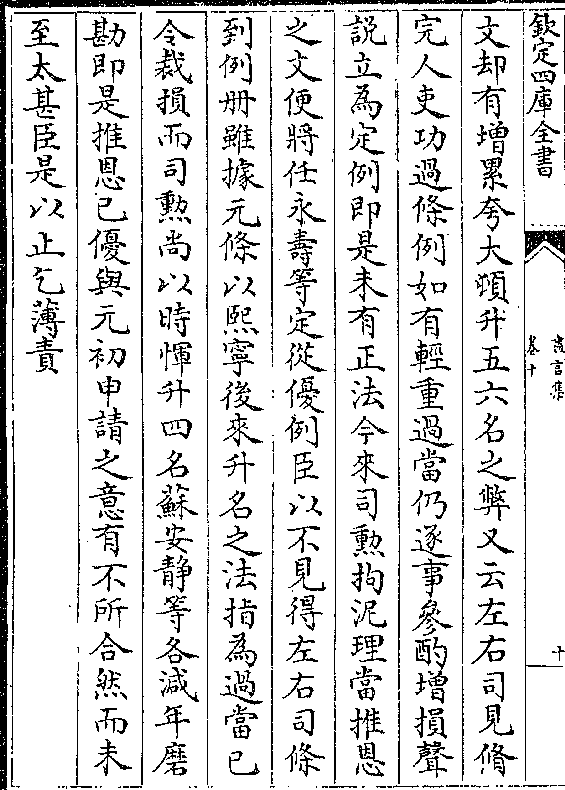 欽定四庫全書
讜言集
卷十
十
文却有增累夸大頓升五六名之弊又云左右司見脩
完人吏功過條例如有輕重過當仍逐事參酌增損聲
説立為定例即是未有正法今來司勲拘泥理當推恩
之文便將任永壽等定從優例臣以不見得左右司條
到例册雖據元條以熙寧後來升名之法指為過當已
令裁損而司勲尚以時惲升四名蘇安静等各減年磨
勘即是推恩已優與元初申請之意有不所合然而未
至太甚臣是以止乞薄責